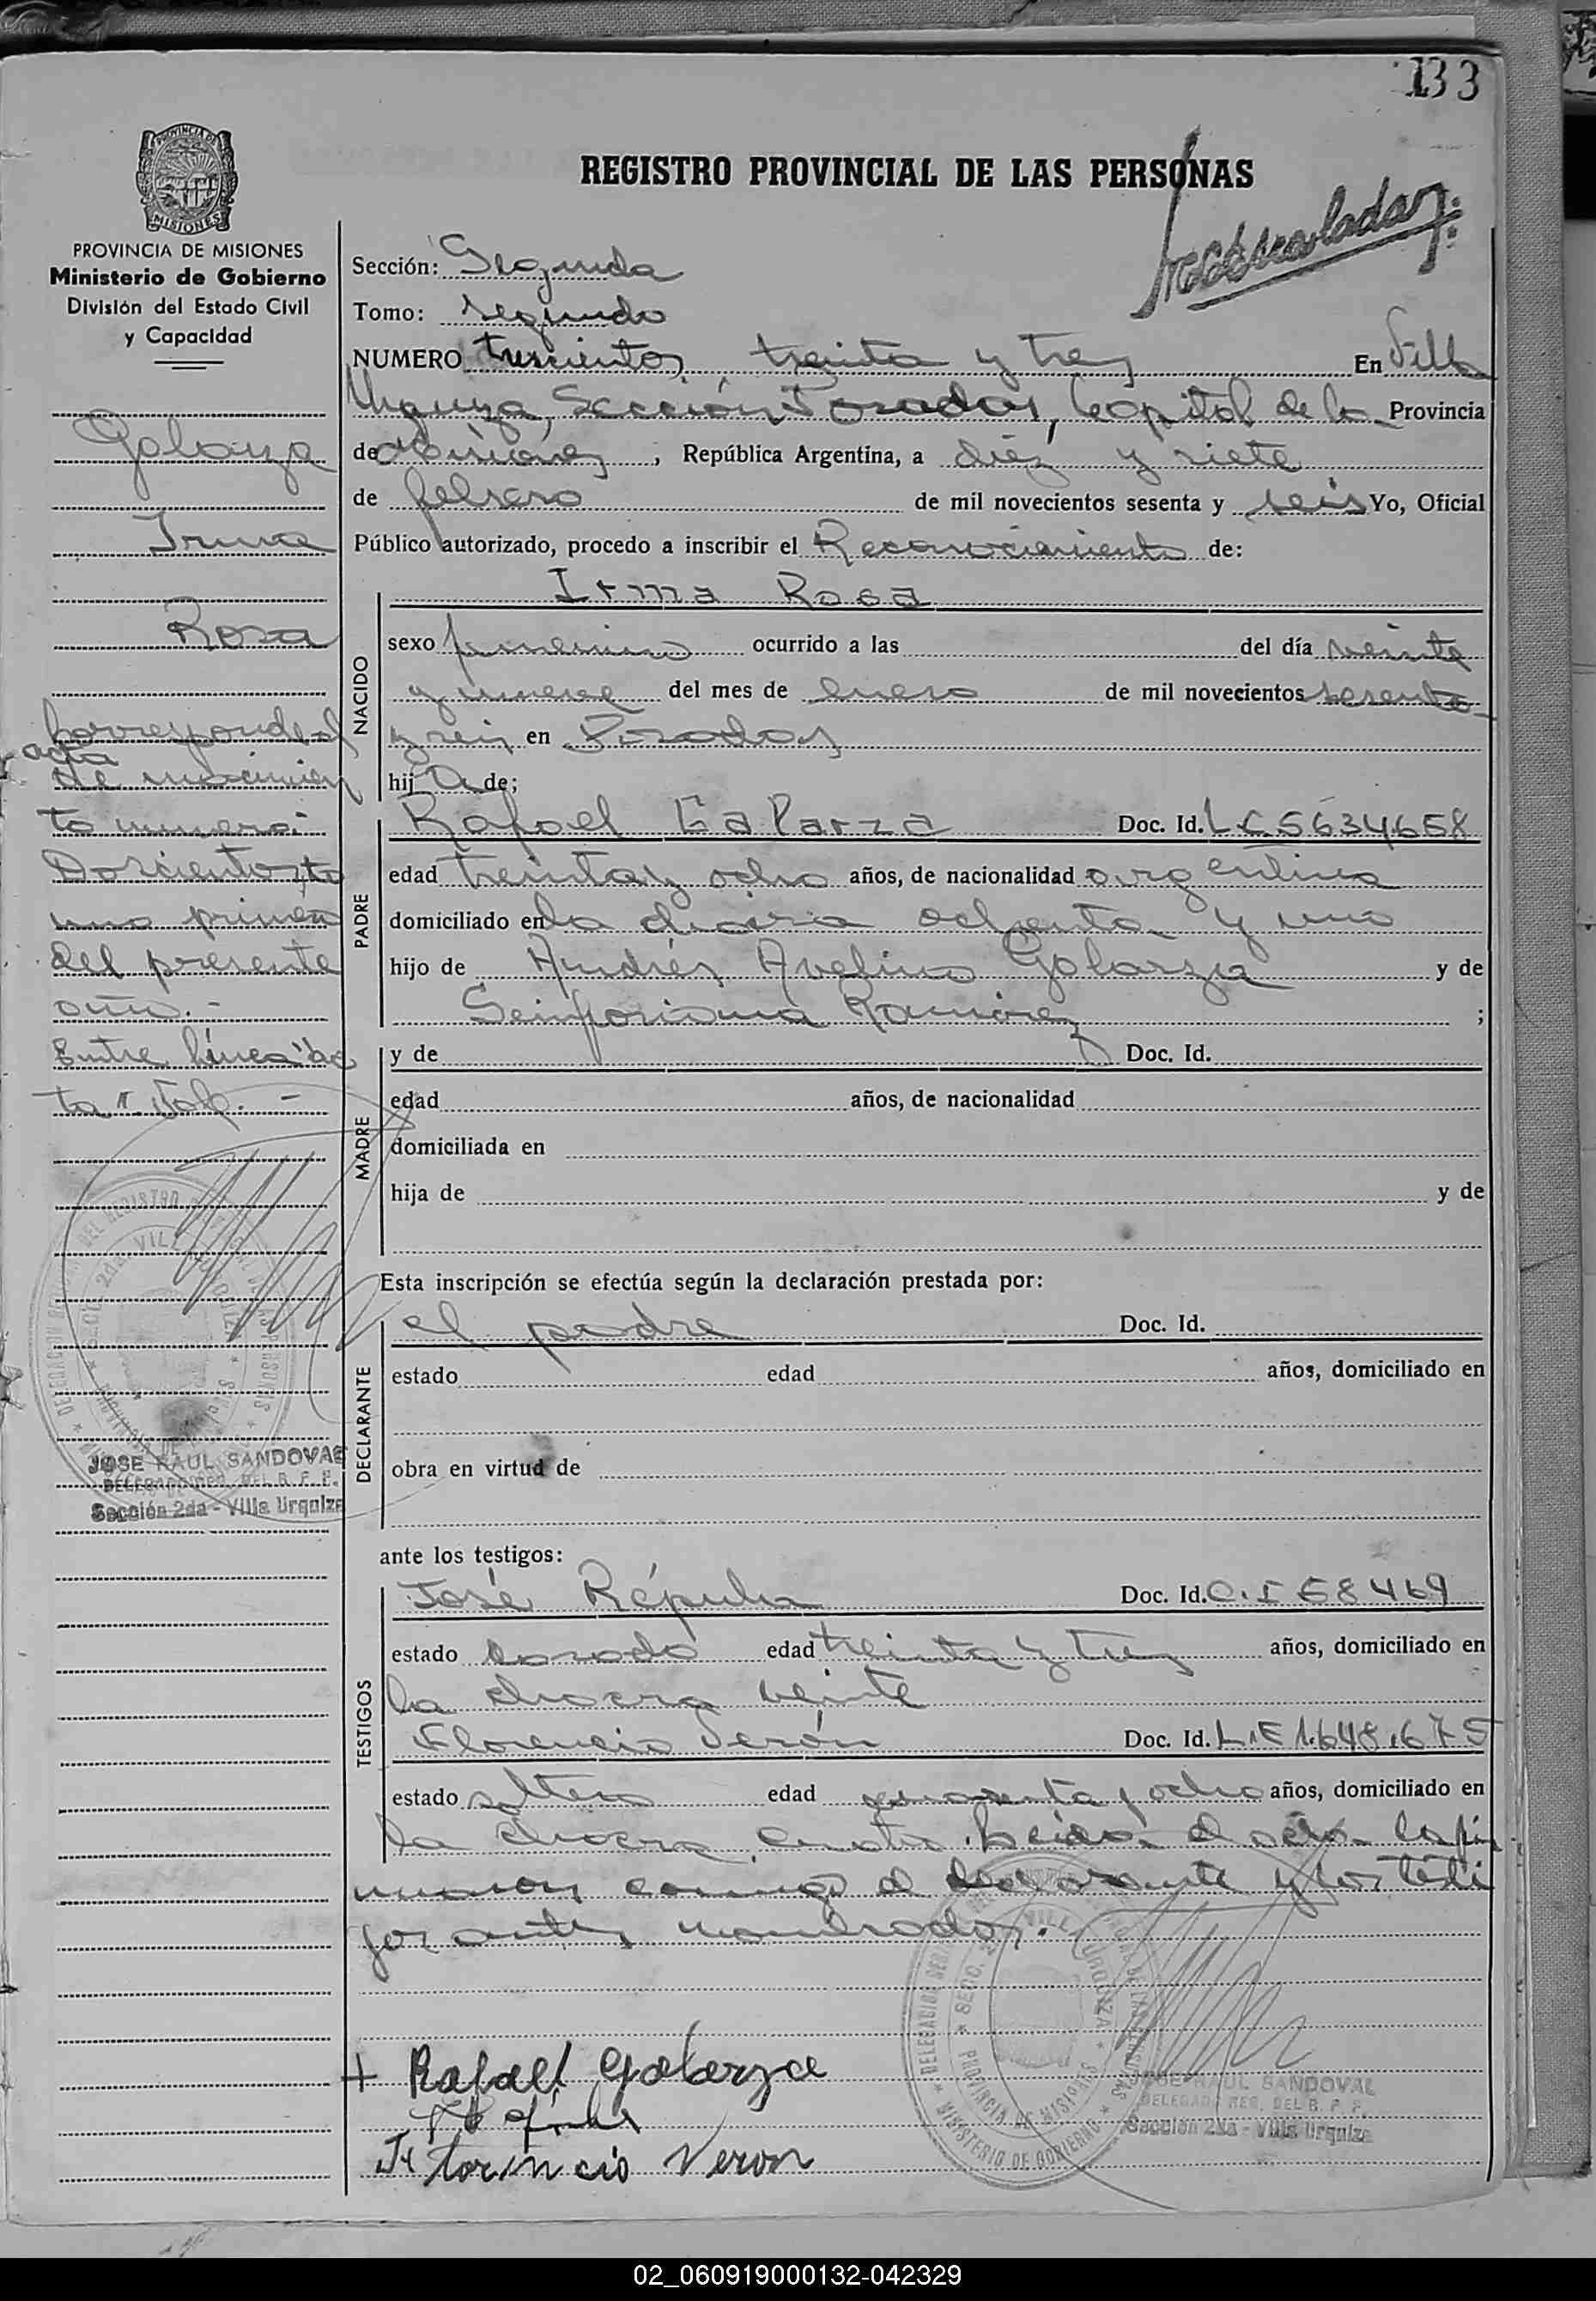 133
REGISTRO PROVINCIAL DE LAS PERSONAS
PROVINCIA DE
MISIONES
PROVINCIA DE MISIONES
Ministerio de Gobierno
División del Estado Civil
y Capacidad
Galarza
Irma
Rosa
Corresponde al
acta
de nacimien
to número:
Doscientos
uno primero
del presente
año.-
Entre línea "ac
ta". Vale. -
JOSE RAUL SANDOVAL
DELEGADO REG. DEL R. P. P.
Sección 2da - Villa Urquiza
Sección: Segunda
Tomo: segundo
NUMERO trescientos treinta y tres En Villa
Urquiza, Sección Posadas, Capital de la Provincia
de Misiones, República Argentina, a diez y siete
de febrero de mil novecientos sesenta y seis Yo, Oficial
Público autorizado, procedo a inscribir el Reconocimiento de:
NACIDO
Irma Rosa
sexo femenino ocurrido a las del día veinte
y nueve del mes de enero de mil novecientos sesenta
y seis en Posadas
hija de;
PADRE
Rafael Galarza Doc. Id. L.E 5634658
edad treinta y ocho años, de nacionalidad argentina
domiciliado en la chacra ochenta y uno
hijo de Andrés Avelino Galarza y de
Seinforiana Ramirez ;
MADRE
y de Doc. Id.
edad años, de nacionalidad
domiciliada en
hija de y de
Esta inscripción se efectúa según la declaración prestada por:
DECLARANTE
el padre Doc. Id.
estado edad años, domiciliado en
obra en virtud de
ante los testigos:
TESTIGOS
José Doc. Id. C.I 68469
estado casado edad treinta y tres años, domiciliado en
la chacra veinte
Florencio Verón Doc. Id. L.E 1.648.675
estado soltero edad cuarenta y ocho años, domiciliado en
la chacra cuatro. Leida el acta la fir
maron conmigo el declarante y los testi
gos antes nombrados.
DELEGACION
SECC. 2da VILLA URQUIZA
PROVINCIA DE MISIONES
MINISTERIO DE GOBIERNO
+ Rafael Galarza
Florincio Veron
JOSE RAUL SANDOVAL
DELEGADO REG. DEL R. P. P.
Sección 2da - Villa Urquiza
02_060919000132-042329